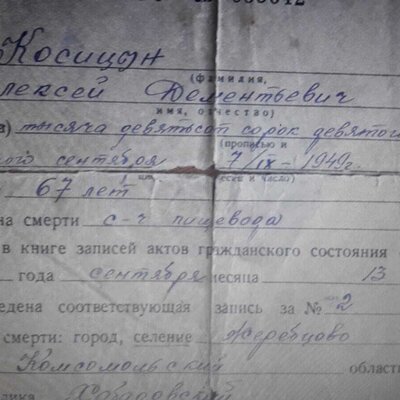 Косицын
(фамилия,
лексей Дементьевич
имя, отчество)
в) тысяча девятьсот сорок девятого
(прописью и
ого сентября 7/IX-1949г.
циф есяц и число)
67 лет
на смерти с-ч пищевода
в книге записей актов гражданского состояния
года сентября месяца 13
едена соответствующая запись за № 2
смерти: город, селение Жеребцово
Комсомольский област
лика Хабаровский